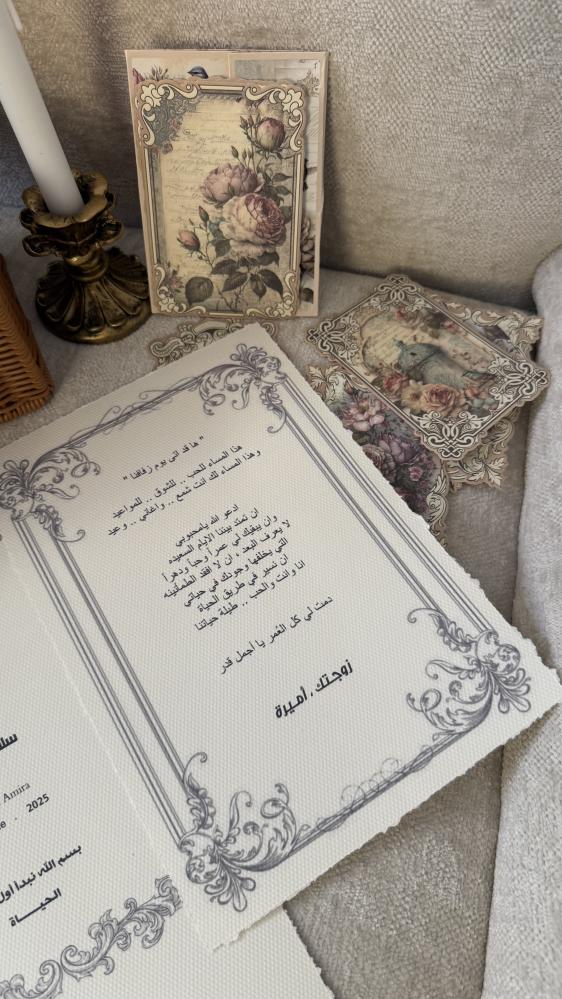 " ها قد اتى يوم زفافنا "
هذا المساء للحب .. للشوق .. للمواعيد
وهذا المساء لك انت شمع .. واغاني .. وعيد
ادعو الله يامحبوبي
ان تمتد بيننا الايام السعيده
وان يبقيك لي عمراً وحباً ودهراً
لا يعرف البعد ، ان لا افقد الطمأنينه
التي يخلقها وجودك في حياتي
ان نسير في طريق الحياة
انا وانت والحب .. طيلة حياتنا
دمت لي كل العُمر يا أجمل قدر
زوجتك ، أميرة
Amira
2025
بسم الله نبدأ أول
الحيـــاة